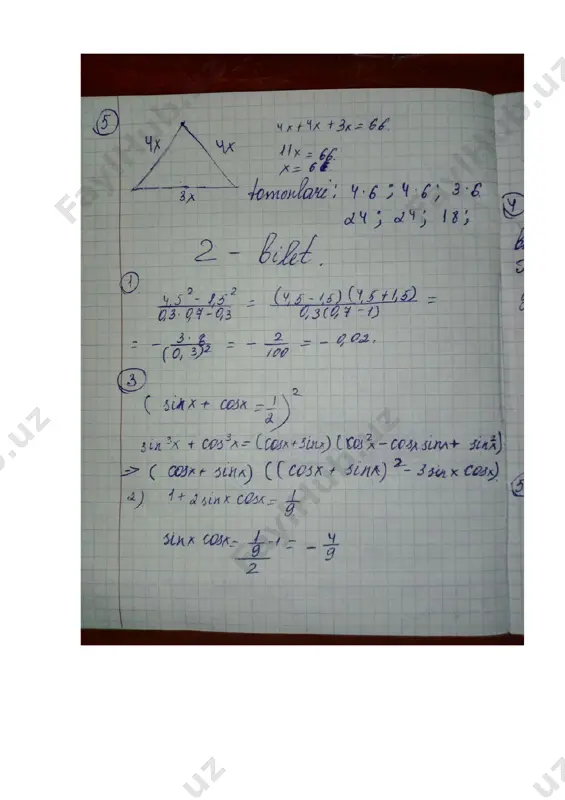 5
4x
4x
3x
4x+4x+3x=66.
11x=66.
x=6
tomonlari: 4·6; 4·6; 3·6
24; 24; 18;
2 - bilet.
1
(4,5² - 1,5²)/(0,3·0,7-0,3) = (4,5-1,5)(4,5+1,5)/(0,3(0,7-1)) =
= - 3·2/(0,3)² = - 2/100 = -0,02.
3
(sinx + cosx = 1/2)²
sin³x + cos³x = (cosx+sinx)(cos²x - cosx sinx + sin²x)
=> (cosx + sinx)((cosx + sinx)² - 3sinx cosx)
2) 1+2sinx cosx = 1/9
sinx cosx = (1/9 - 1)/2 = - 4/9
4
5
FaylHub.uz
FaylHub.uz
FaylHub.uz
FaylHub.uz